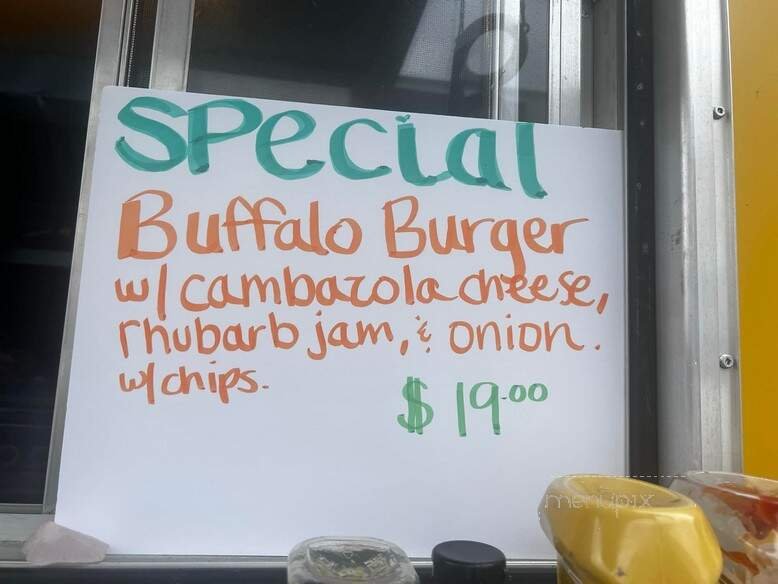 SPecial
Buffalo Burger
w/ cambazola cheese,
rhubarb jam, & onion.
w/ chips.
$19.00
menupix